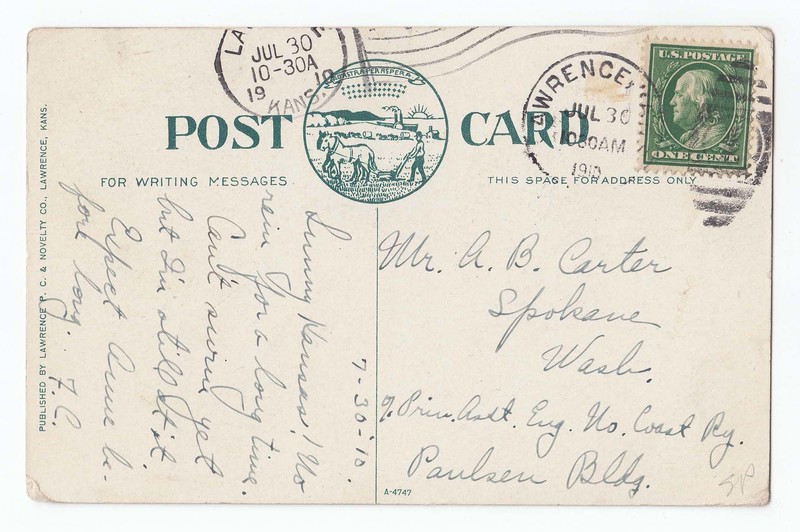 LAWRENCE
JUL 30
10-30A
19 10
KANS.
AD ASTRA PER ASPERA
LAWRENCE,
JUL 30
1030AM
1910
U.S. POSTAGE
ONE CENT
POST CARD
FOR WRITING MESSAGES
THIS SPACE FOR ADDRESS ONLY
PUBLISHED BY LAWRENCE P. C. & NOVELTY CO., LAWRENCE, KANS.
7-30-'10.
Sunny Kansas! No
rain for a long time.
Can't swim yet
but I'm still at it.
Expect Anne be-
fore long. F.C.
Mr. A. B. Carter
Spokane
Wash.
% Prin. Asst. Eng. No. Coast Ry.
Paulsen Bldg.
A-4747